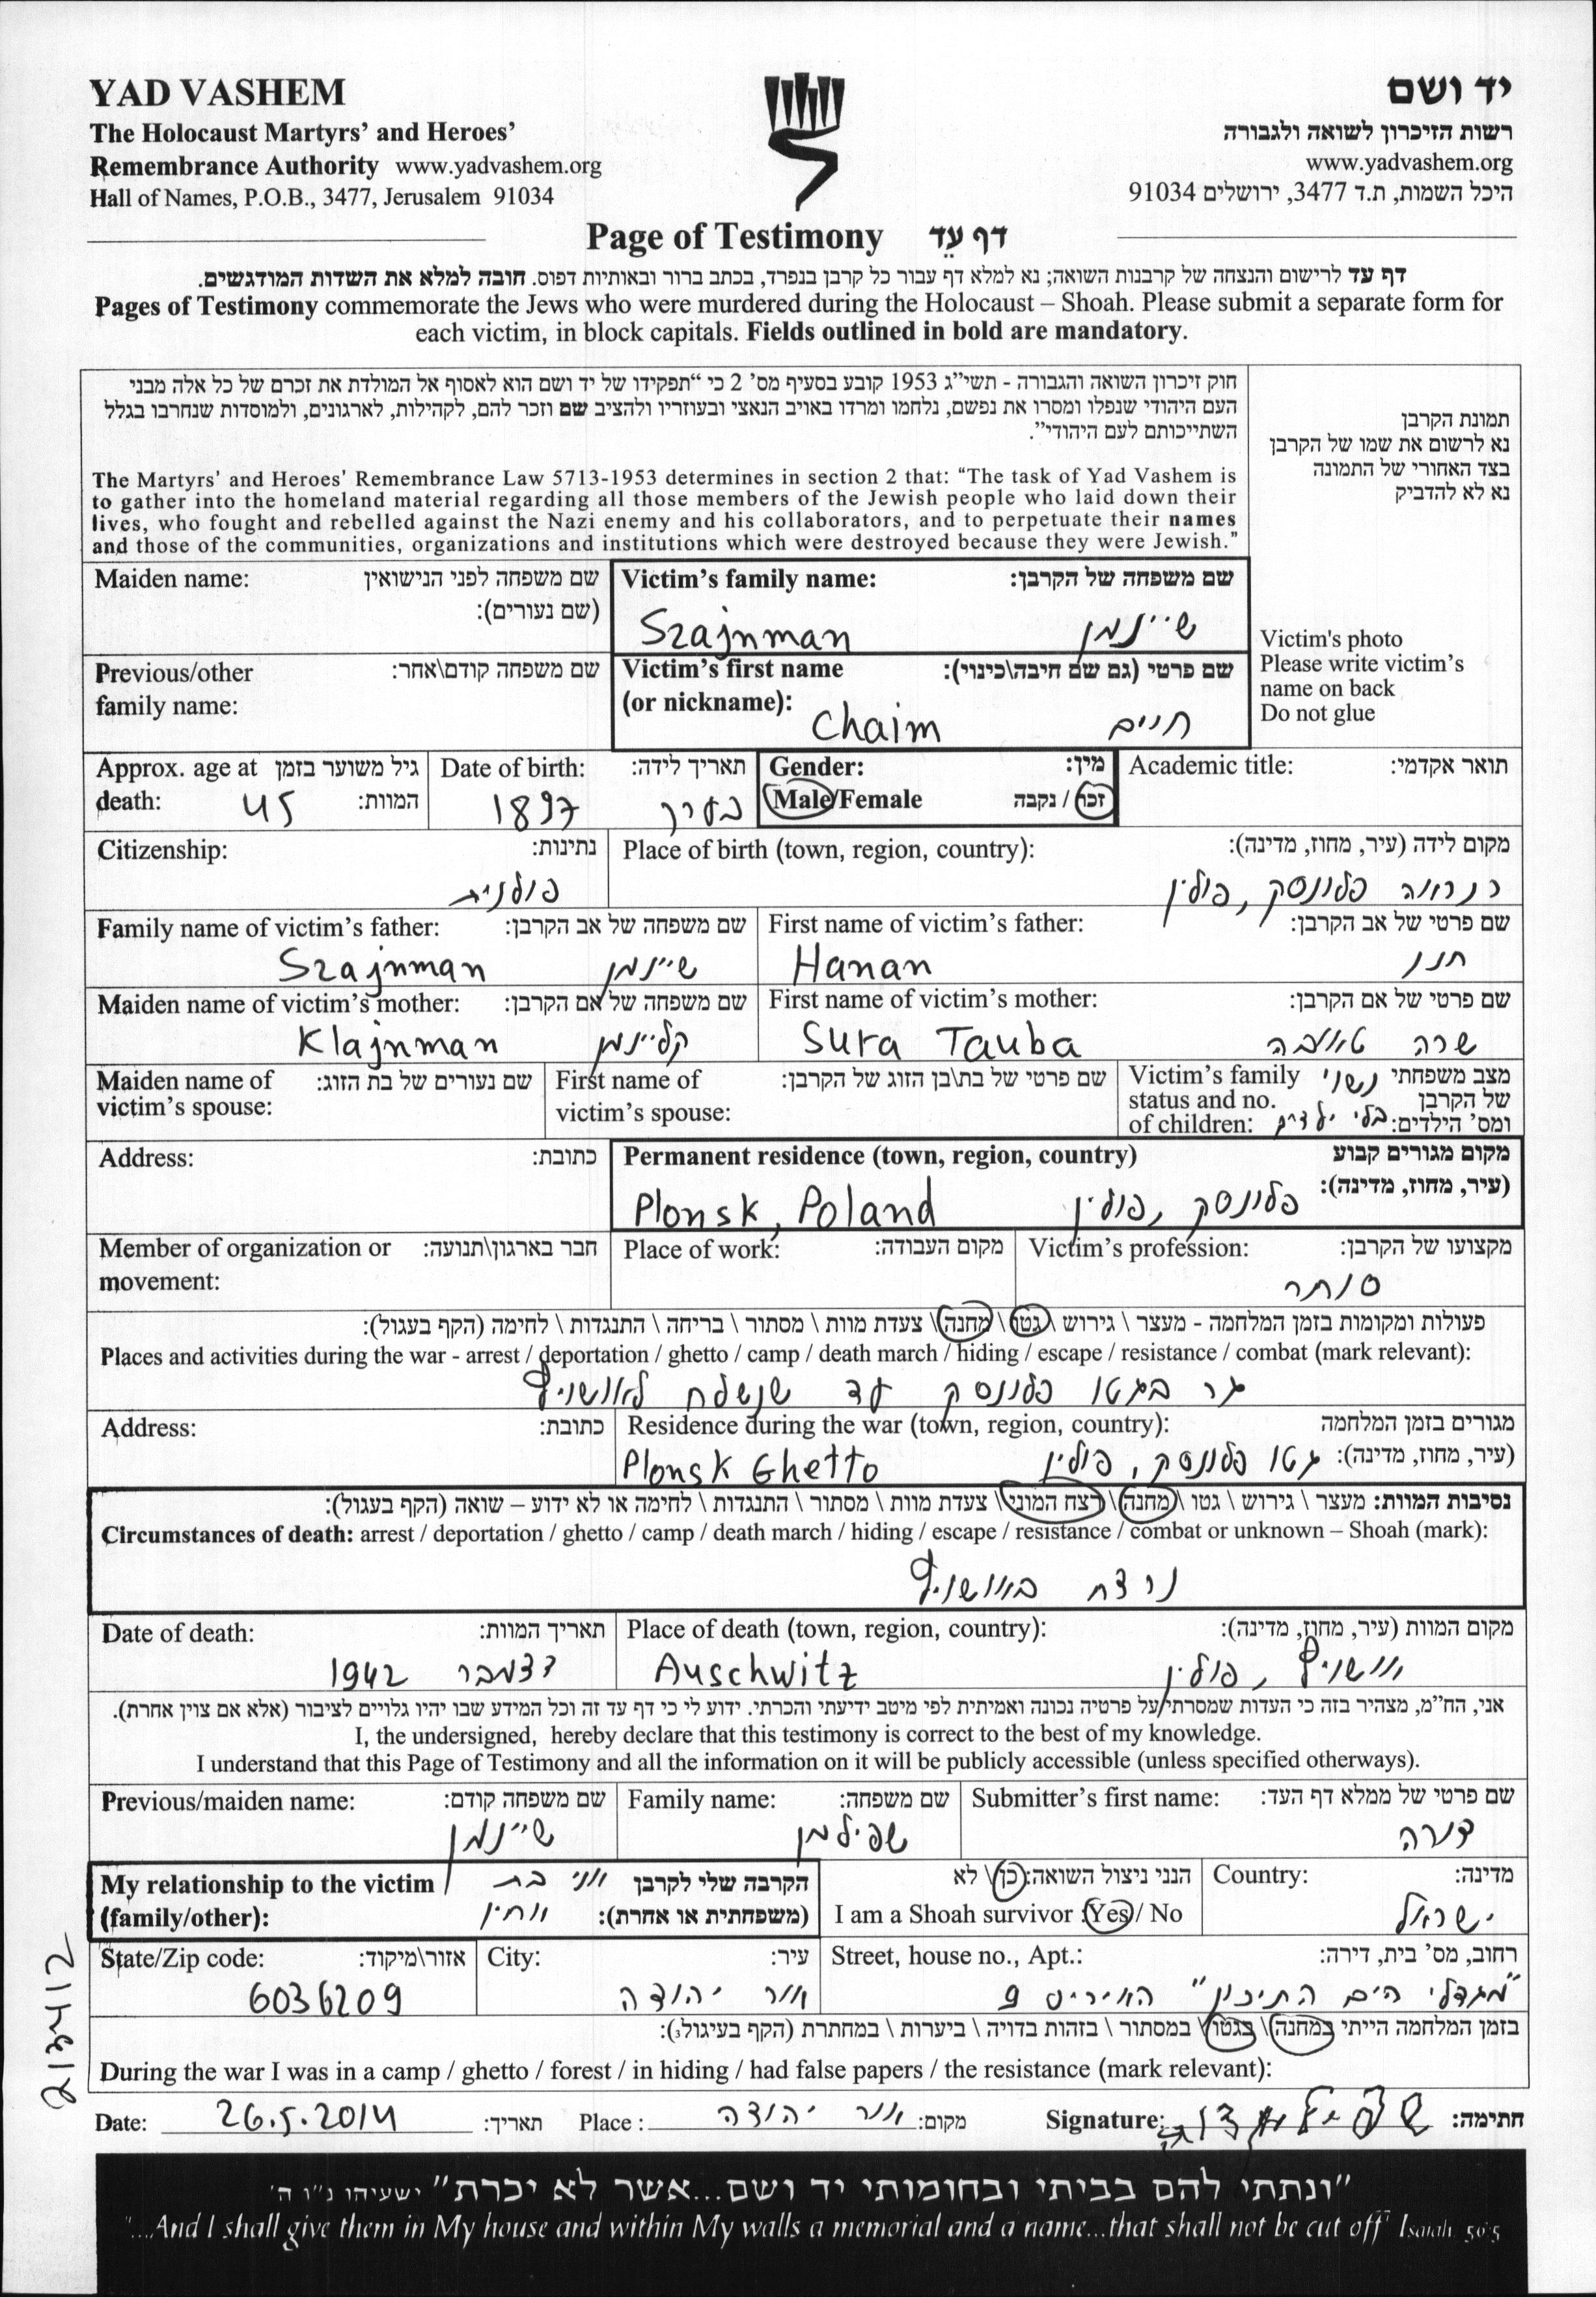 YAD VASHEM
The Holocaust Martyrs' and Heroes'
Remembrance Authority www.yadvashem.org
Hall of Names, P.O.B., 3477, Jerusalem 91034
יד ושם
רשות הזיכרון לשואה ולגבורה
www.yadvashem.org
היכל השמות, ת.ד 3477, ירושלים 91034
Page of Testimony דף עֵד
דף עד לרישום והנצחה של קרבנות השואה; נא למלא דף עבור כל קרבן בנפרד, בכתב ברור ובאותיות דפוס. חובה למלא את השדות המודגשים.
Pages of Testimony commemorate the Jews who were murdered during the Holocaust – Shoah. Please submit a separate form for
each victim, in block capitals. Fields outlined in bold are mandatory.
חוק זיכרון השואה והגבורה - תשי"ג 1953 קובע בסעיף מס' 2 כי "תפקידו של יד ושם הוא לאסוף אל המולדת את זכרם של כל אלה מבני
העם היהודי שנפלו ומסרו את נפשם, נלחמו ומרדו באויב הנאצי ובעוזריו ולהציב שם וזכר להם, לקהילות, לארגונים, ולמוסדות שנחרבו בגלל
השתייכותם לעם היהודי".
The Martyrs' and Heroes' Remembrance Law 5713-1953 determines in section 2 that: "The task of Yad Vashem is
to gather into the homeland material regarding all those members of the Jewish people who laid down their
lives, who fought and rebelled against the Nazi enemy and his collaborators, and to perpetuate their names
and those of the communities, organizations and institutions which were destroyed because they were Jewish."
תמונת הקרבן
נא לרשום את שמו של הקרבן
בצד האחורי של התמונה
נא לא להדביק
Victim's photo
Please write victim's
name on back
Do not glue
Maiden name: שם משפחה לפני הנישואין
(שם נעורים):
Victim's family name: שם משפחה של הקרבן:
Szajnman שיינמן
Previous/other שם משפחה קודם\אחר:
family name:
Victim's first name שם פרטי (גם שם חיבה\כינוי):
(or nickname):
Chaim חיים
Approx. age at גיל משוער בזמן
death: 45 המוות:
Date of birth: תאריך לידה:
1897 בערך
Gender: מין:
Male/Female זכר / נקבה
Academic title: תואר אקדמי:
Citizenship: נתינות:
פולנית
Place of birth (town, region, country): מקום לידה (עיר, מחוז, מדינה):
פלונסק, פולין
Family name of victim's father: שם משפחה של אב הקרבן:
Szajnman שיינמן
First name of victim's father: שם פרטי של אב הקרבן:
Hanan חנן
Maiden name of victim's mother: שם משפחה של אם הקרבן:
Klajnman קליינמן
First name of victim's mother: שם פרטי של אם הקרבן:
Sura Tauba שרה טאובה
Maiden name of שם נעורים של בת הזוג:
victim's spouse:
First name of שם פרטי של בת\בן הזוג של הקרבן:
victim's spouse:
Victim's family מצב משפחתי נשוי
status and no. של הקרבן
of children: ומס' הילדים: בלי ילדים
Address: כתובת:
Permanent residence (town, region, country) מקום מגורים קבוע
(עיר, מחוז, מדינה):
Plonsk, Poland פלונסק, פולין
Member of organization or חבר בארגון\תנועה:
movement:
Place of work: מקום העבודה:
Victim's profession: מקצועו של הקרבן:
סוחר
פעולות ומקומות בזמן המלחמה - מעצר \ גירוש \ גטו \ מחנה \ צעדת מוות \ מסתור \ בריחה \ התנגדות \ לחימה (הקף בעגול):
Places and activities during the war - arrest / deportation / ghetto / camp / death march / hiding / escape / resistance / combat (mark relevant):
גר בגטו פלונסק עד שנשלח לאושויץ
Address: כתובת:
Residence during the war (town, region, country): מגורים בזמן המלחמה
(עיר, מחוז, מדינה):
Plonsk Ghetto גטו פלונסק, פולין
נסיבות המוות: מעצר \ גירוש \ גטו \ מחנה \ רצח המוני \ צעדת מוות \ מסתור \ התנגדות \ לחימה או לא ידוע – שואה (הקף בעגול):
Circumstances of death: arrest / deportation / ghetto / camp / death march / hiding / escape / resistance / combat or unknown – Shoah (mark):
נרצח באושויץ
Date of death: תאריך המוות:
דצמבר 1942
Place of death (town, region, country): מקום המוות (עיר, מחוז, מדינה):
Auschwitz אושויץ, פולין
אני, הח"מ, מצהיר בזה כי העדות שמסרתי על פרטיה נכונה ואמיתית לפי מיטב ידיעתי והכרתי. ידוע לי כי דף עד זה וכל המידע שבו יהיו גלויים לציבור (אלא אם צוין אחרת).
I, the undersigned, hereby declare that this testimony is correct to the best of my knowledge.
I understand that this Page of Testimony and all the information on it will be publicly accessible (unless specified otherways).
Previous/maiden name: שם משפחה קודם:
שיינמן
Family name: שם משפחה:
שפילמן
Submitter's first name: שם פרטי של ממלא דף העד:
דורה
My relationship to the victim הקרבה שלי לקרבן אני בת
(family/other): (משפחתית או אחרת): אחיו
הנני ניצול השואה: כן \ לא
I am a Shoah survivor: Yes / No
Country: מדינה:
ישראל
State/Zip code: אזור\מיקוד:
6036209
City: עיר:
אור יהודה
Street, house no., Apt.: רחוב, מס' בית, דירה:
"מגדלי הים התיכון" האיריס 9
בזמן המלחמה הייתי במחנה \ בגטו \ במסתור \ בזהות בדויה \ ביערות \ במחתרת (הקף בעיגול):
During the war I was in a camp / ghetto / forest / in hiding / had false papers / the resistance (mark relevant):
Date: 26.5.2014 תאריך: Place: אור יהודה מקום: Signature: שפילמן דורה חתימה:
213412
"ונתתי להם בביתי ובחומותי יד ושם...אשר לא יכרת" ישעיהו נ"ו ה'
"...And I shall give them in My house and within My walls a memorial and a name...that shall not be cut off" Isaiah 56:5